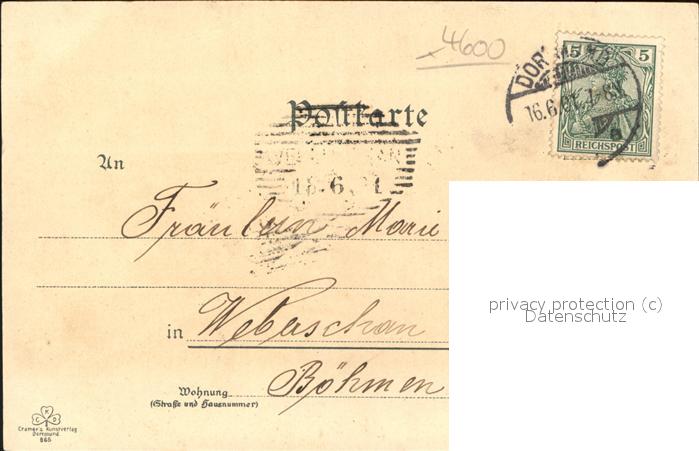 4600
DORTMUND
16.6.01. 7-8V.
5 5
REICHSPOST
Postkarte
18 6
An
Fräulein Marie
in Weberschan
Böhmen
Wohnung
(Straße und Hausnummer)
C K D
Cramers Kunstverlag
Dortmund
865
privacy protection (c)
Datenschutz